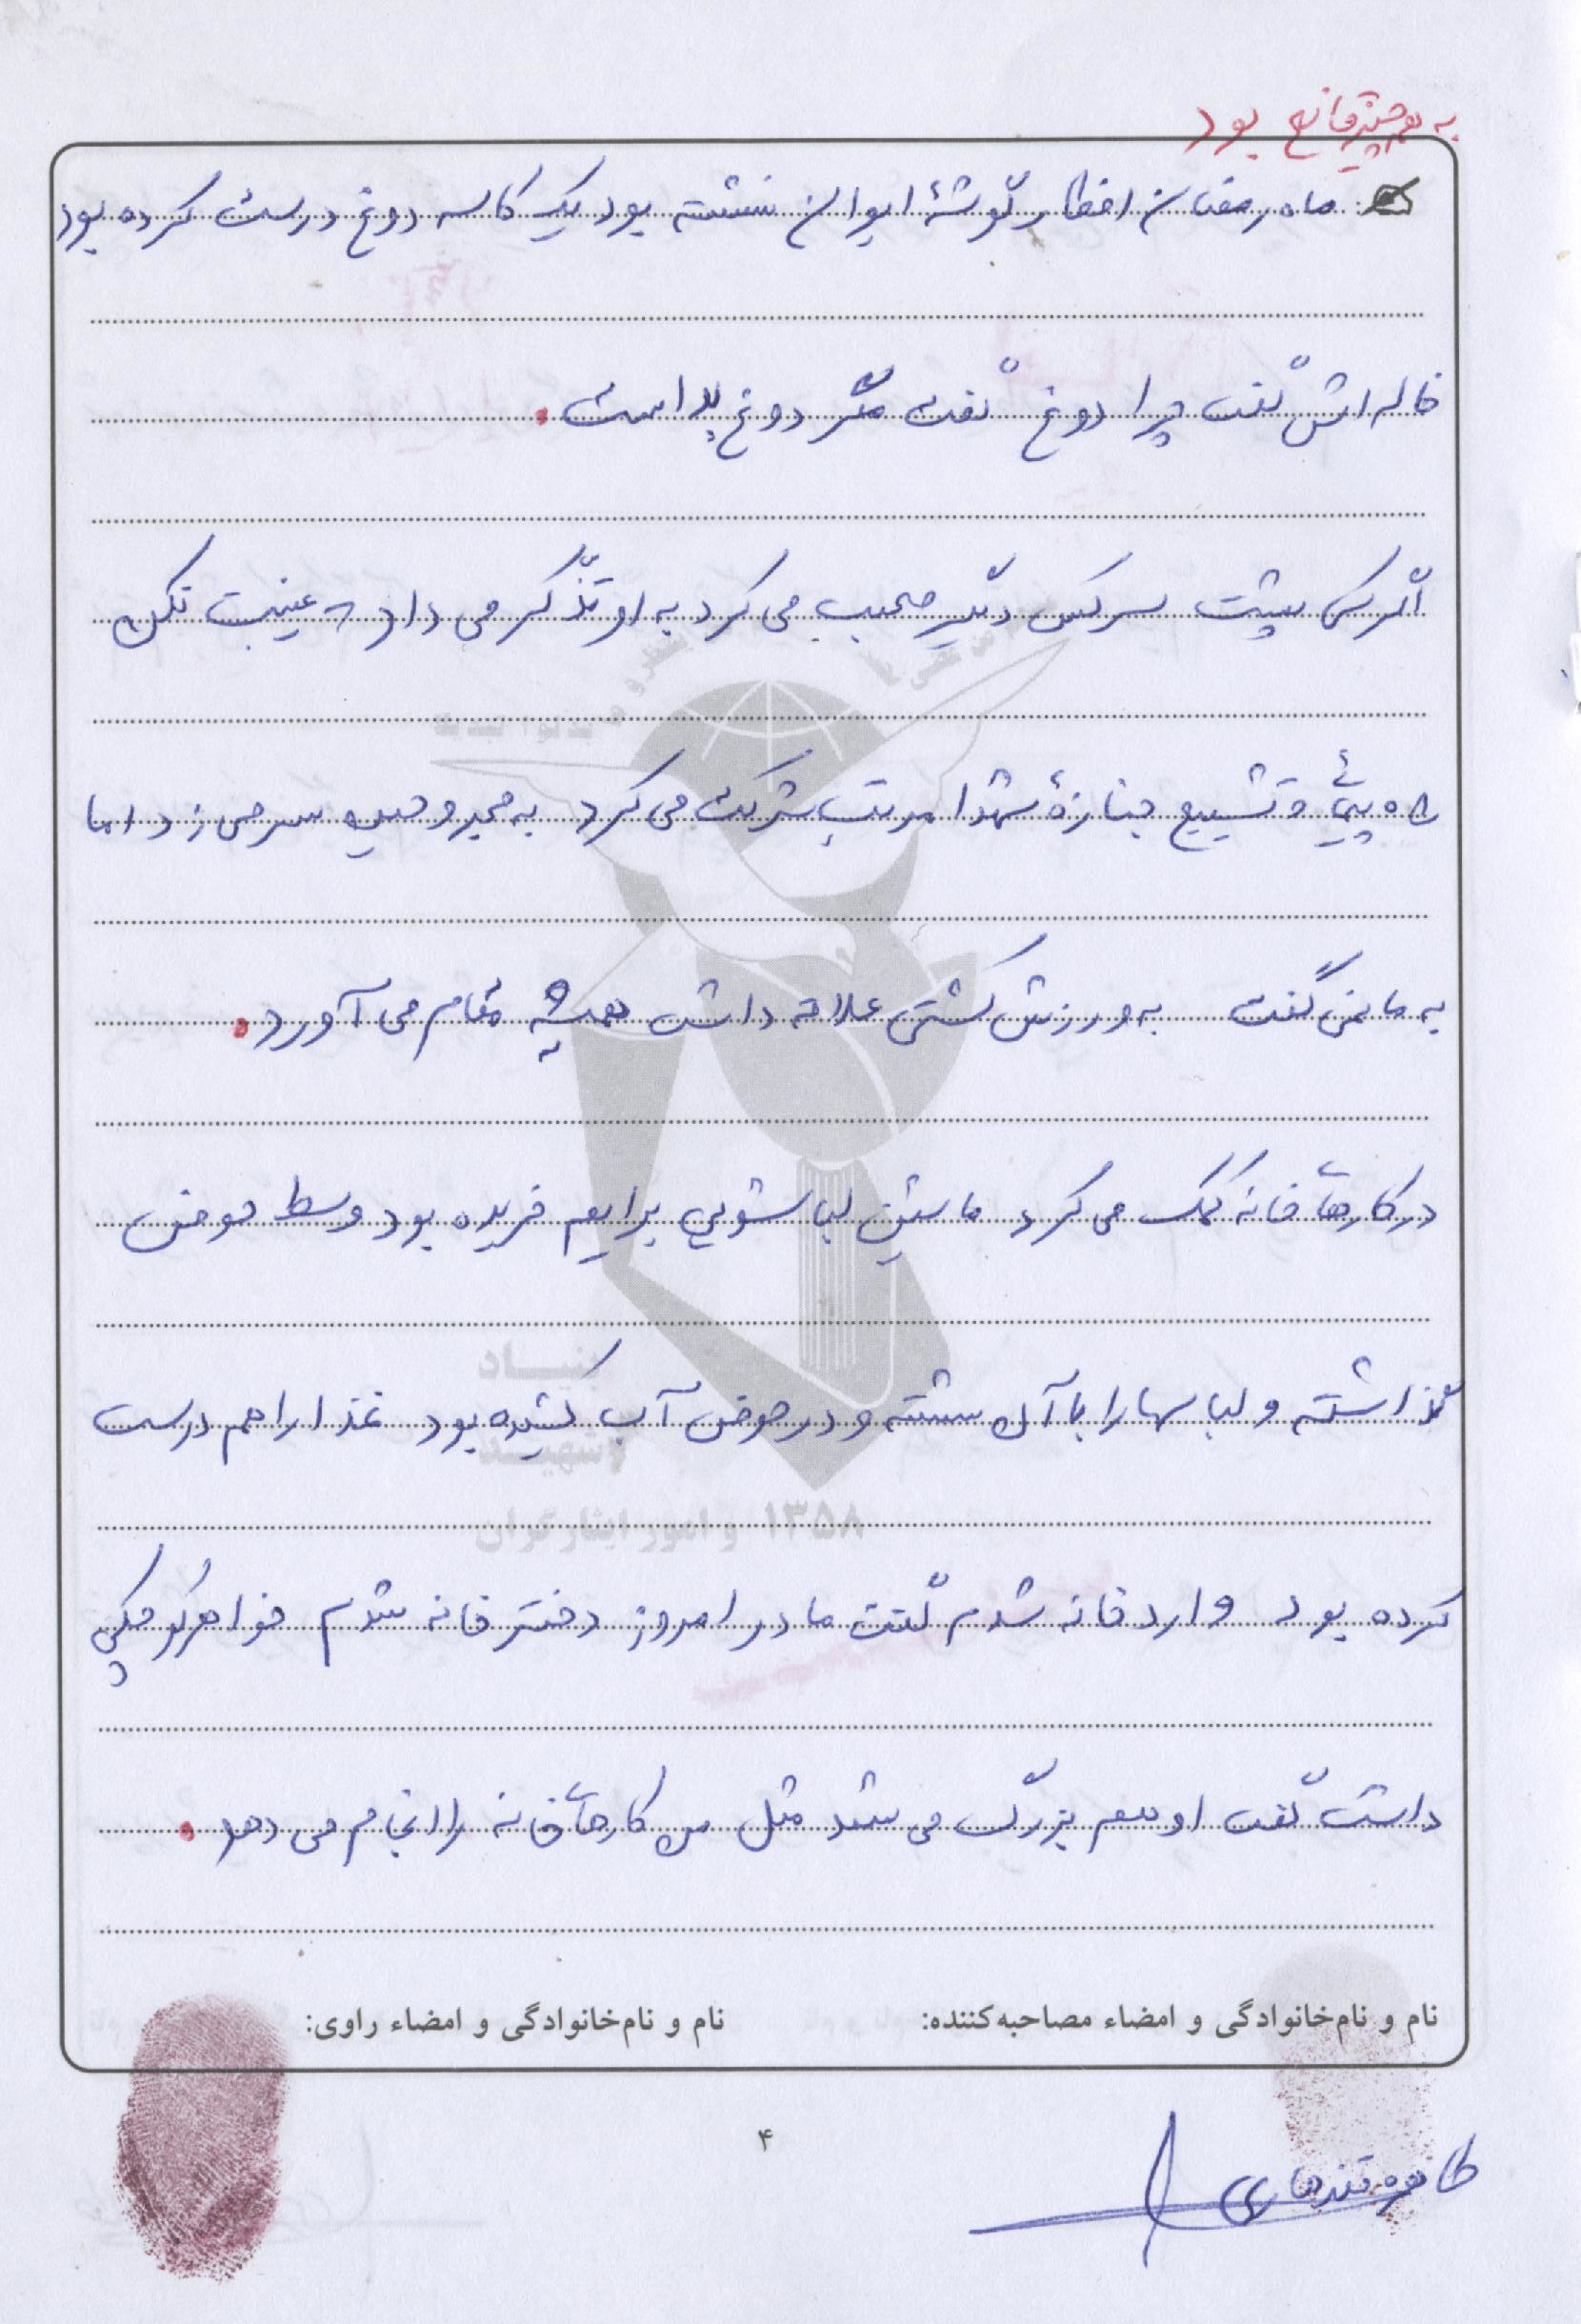 به هر چیز قانع بود
ماه رمضان افطار گوشهٔ ایوان نشسته بود یک کاسه دوغ درست کرده بود
خاله اش گفت چرا دوغ گفت مگر دوغ بد است.
اگر کسی پشت سر کس دیگر صحبت می کرد به او تذّکر می داد غیبت نکن
راه پیمائی و تشییع جنازهٔ شهدا مرتب شرکت می کرد به مجروحین سر می زد اما
به ما نمی گفت به ورزش کشتی علاقه داشت همیشه مقام می آورد.
در کارهای خانه کمک می کرد ماشین لباسشویی برایم خریده بود وسط حوض
گذاشته و لباسها را با آن شسته و در حوض آب کشیده بود غذا را هم درست
کرده بود وارد خانه شدم گفت مادر امروز دختر خانه شدم خواهر کوچکی
داشت گفت او هم بزرگ می شد مثل من کارهای خانه را انجام می دهد.
بنیاد
شهید
و امور ایثارگران ۱۳۵۸
نام و نام‌خانوادگی و امضاء مصاحبه‌کننده: نام و نام‌خانوادگی و امضاء راوی:
۴
طاهره قندهاری